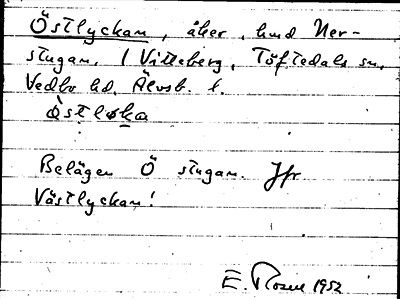 Östlyckan, åker, hmd Ner-
stugan, 1 Vitteberg, Töftedals sn,
Vedbo hd, Älvsb. l.
Belägen Ö stugan. Jfr
Västlyckan!
E. Rosen 1952